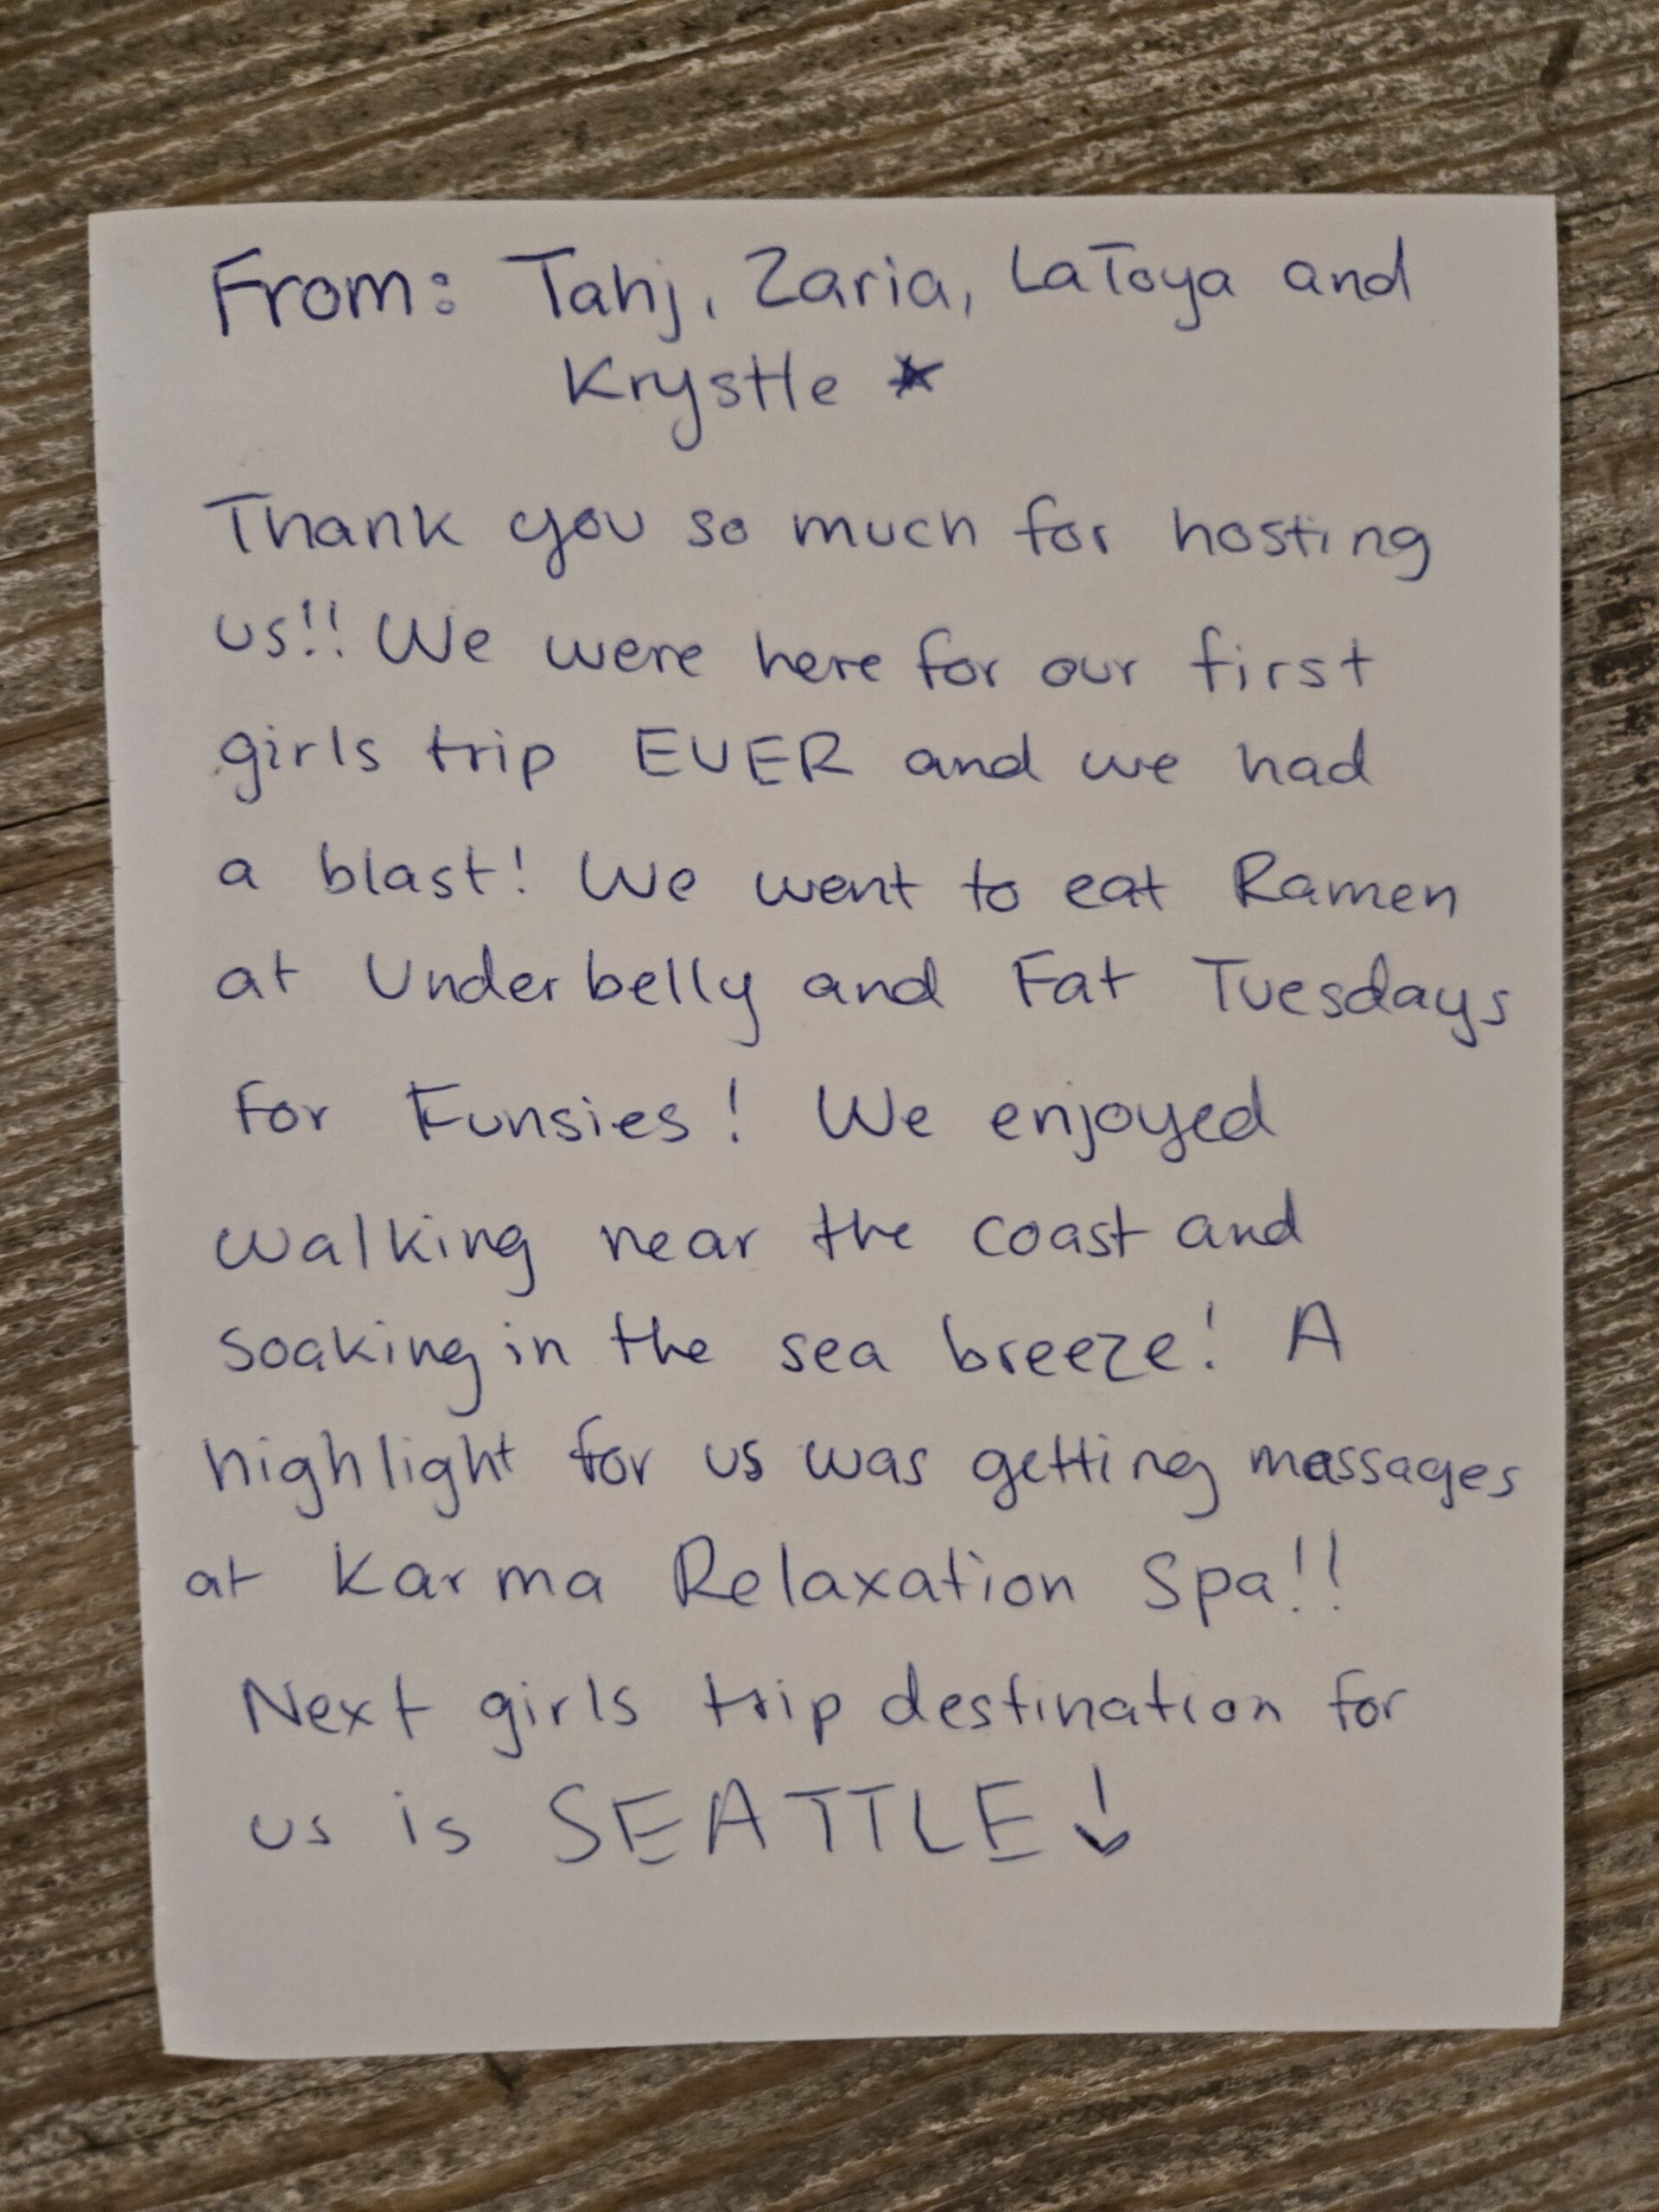 From: Tahj, Zaria, LaToya and
Krystle ★
Thank you so much for hosting
us!! We were here for our first
girls trip EVER and we had
a blast! We went to eat Ramen
at Underbelly and Fat Tuesdays
for Funsies! We enjoyed
walking near the coast and
soaking in the sea breeze! A
highlight for us was getting massages
at Karma Relaxation Spa!!
Next girls trip destination for
us is SEATTLE!